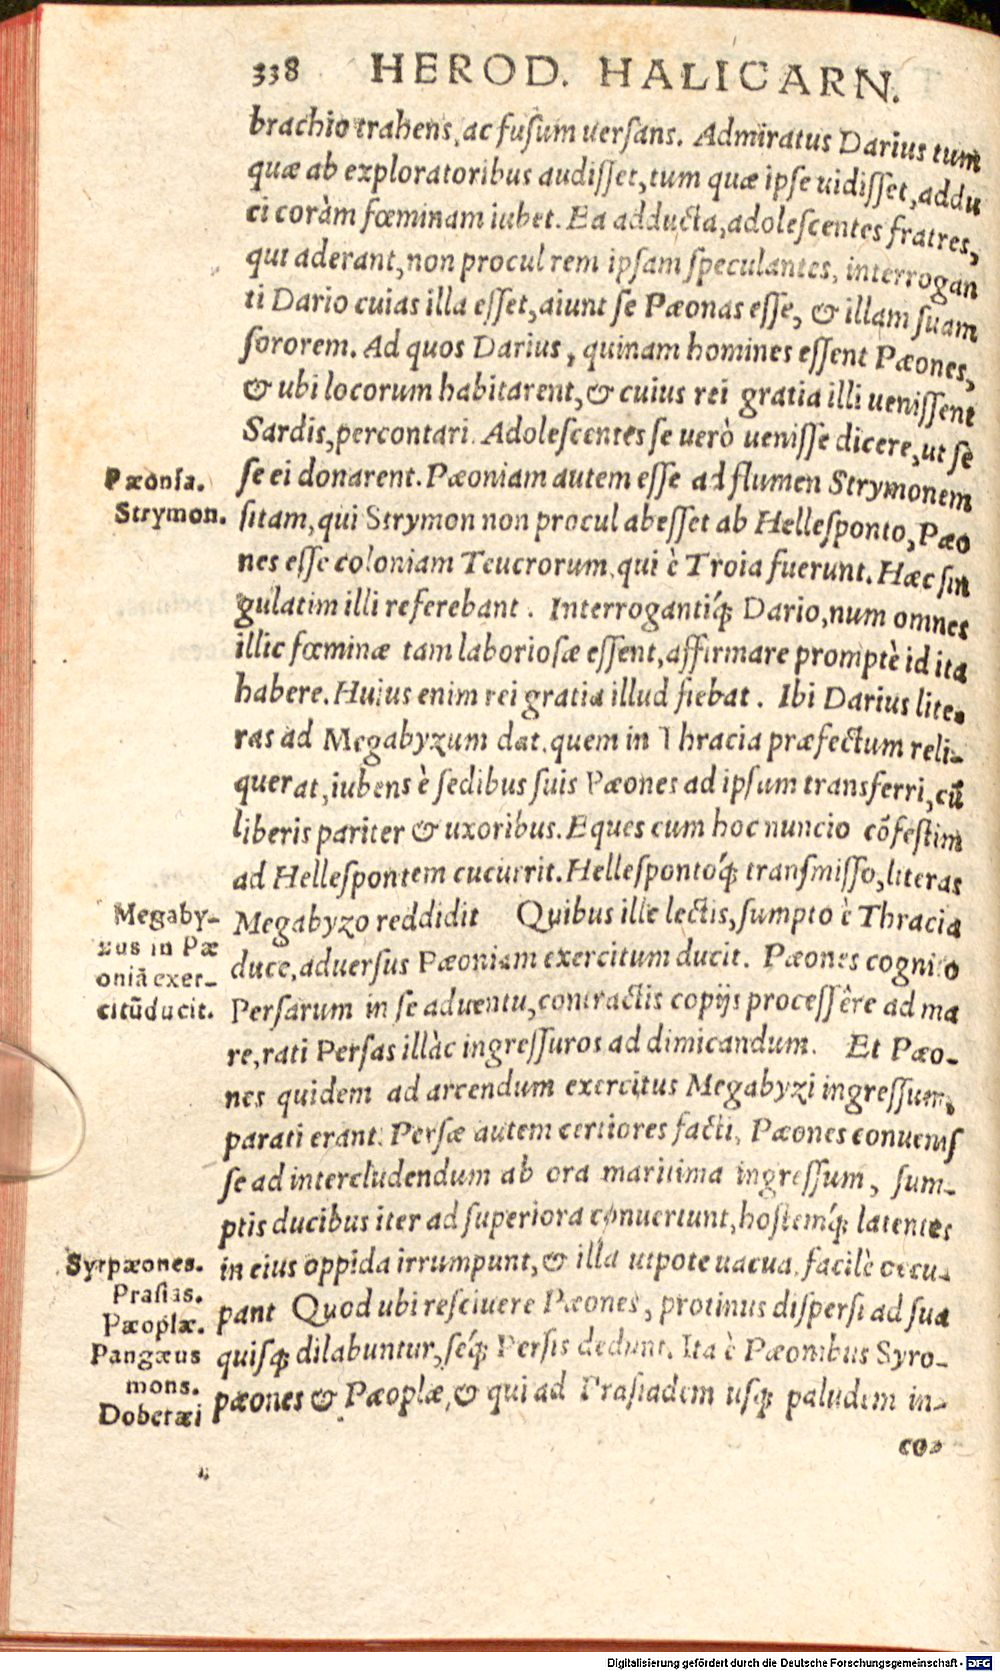 338 HEROD. HALICARN.
brachio trahens, ac fusum uersans. Admiratus Darius tum
quæ ab exploratoribus audisset, tum quæ ipse uidisset, addu
ci coràm fœminam iubet. Ea adducta, adolescentes fratres,
qui aderant, non procul rem ipsam speculantes, interrogan
ti Dario cuias illa esset, aiunt se Pæonas esse, & illam suam
sororem. Ad quos Darius, quinam homines essent Pæones,
& ubi locorum habitarent, & cuius rei gratia illi uenissent
Sardis, percontari. Adolescentes se uerò uenisse dicere, ut se
se ei donarent. Pæoniam autem esse ad flumen Strymonem
Pæonia.
Strymon.
sitam, qui Strymon non procul abesset ab Hellesponto, Pæo
nes esse coloniam Teucrorum, qui è Troia fuerunt. Hæc sin
gulatim illi referebant. Interrogantiq́; Dario, num omnes
illic fœminæ tam laboriosæ essent, affirmare promptè id ita
habere. Huius enim rei gratia illud fiebat. Ibi Darius lite-
ras ad Megabyzum dat, quem in Thracia præfectum reli-
querat, iubens è sedibus suis Pæones ad ipsum transferri, cū
liberis pariter & uxoribus. Eques cum hoc nuncio cōfestim
ad Hellespontem cucurrit. Hellespontoq́; transmisso, literas
Megabyzo reddidit Quibus ille lectis, sumpto è Thracia
duce, aduersus Pæoniam exercitum ducit. Pæones cognito
Megaby-
zus in Pæ
oniā exer-
citū ducit.
Persarum in se aduentu, contractis copijs processêre ad ma
re, rati Persas illàc ingressuros ad dimicandum. Et Pæo-
nes quidem ad arcendum exercitus Megabyzi ingressum,
parati erant. Persæ autem certiores facti, Pæones conuenis
se ad intercludendum ab ora maritima ingressum, sum-
ptis ducibus iter ad superiora conuertunt, hostemq́; latentes
in eius oppida irrumpunt, & illa utpote uacua, facilè occu-
pant Quod ubi resciuere Pæones, protinus dispersi ad sua
quisq; dilabuntur, seq́; Persis dedunt. Ita è Pæonibus Syro-
pæones & Pæoplæ, & qui ad Prasiadem usq; paludem in-
Syrpæones.
Prasias.
Pæoplæ.
Pangæus
mons.
Doberæi
co-
Digitalisierung gefördert durch die Deutsche Forschungsgemeinschaft - DFG